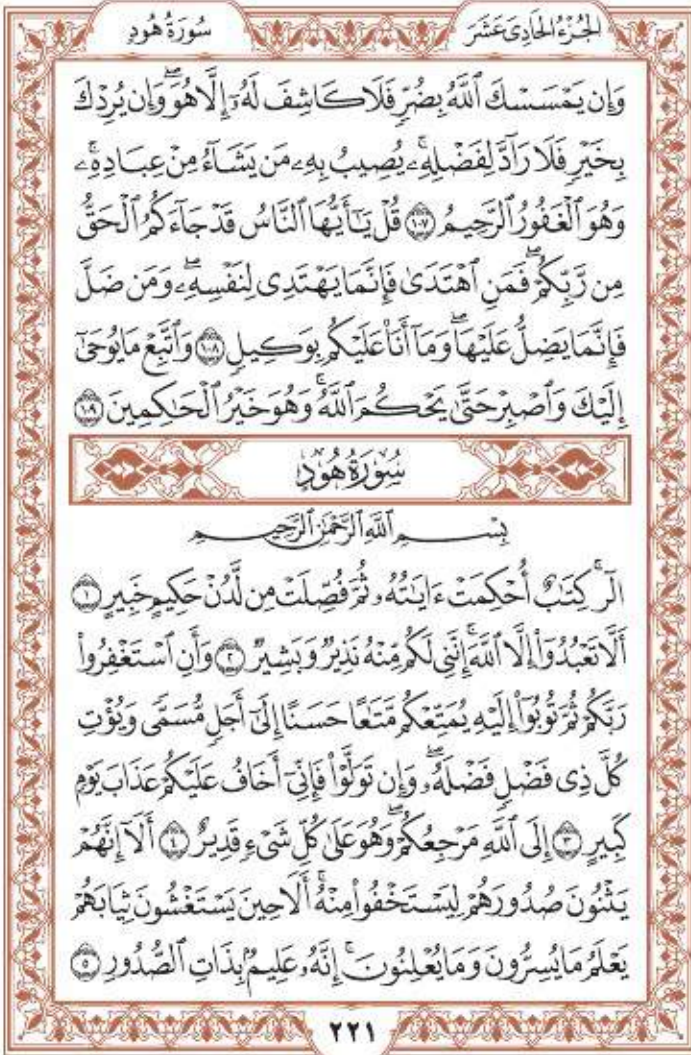 سُورَةُ هُودٍ
الجُزْءُ الحَادِىَ عَشَرَ
وَإِن يَمْسَسْكَ ٱللَّهُ بِضُرٍّ فَلَا كَاشِفَ لَهُۥٓ إِلَّا هُوَۖ وَإِن يُرِدْكَ
بِخَيْرٍ فَلَا رَآدَّ لِفَضْلِهِۦۚ يُصِيبُ بِهِۦ مَن يَشَآءُ مِنْ عِبَادِهِۦۚ
وَهُوَ ٱلْغَفُورُ ٱلرَّحِيمُ ١٠٧ قُلْ يَـٰٓأَيُّهَا ٱلنَّاسُ قَدْ جَآءَكُمُ ٱلْحَقُّ
مِن رَّبِّكُمْۖ فَمَنِ ٱهْتَدَىٰ فَإِنَّمَا يَهْتَدِى لِنَفْسِهِۦۖ وَمَن ضَلَّ
فَإِنَّمَا يَضِلُّ عَلَيْهَاۖ وَمَآ أَنَا۠ عَلَيْكُم بِوَكِيلٍ ١٠٨ وَٱتَّبِعْ مَا يُوحَىٰٓ
إِلَيْكَ وَٱصْبِرْ حَتَّىٰ يَحْكُمَ ٱللَّهُۚ وَهُوَ خَيْرُ ٱلْحَـٰكِمِينَ ١٠٩
سُورَةُ هُودٍ
بِسْمِ ٱللَّهِ ٱلرَّحْمَـٰنِ ٱلرَّحِيمِ
الٓرۚ كِتَـٰبٌ أُحْكِمَتْ ءَايَـٰتُهُۥ ثُمَّ فُصِّلَتْ مِن لَّدُنْ حَكِيمٍ خَبِيرٍ ١
أَلَّا تَعْبُدُوٓا۟ إِلَّا ٱللَّهَۚ إِنَّنِى لَكُم مِّنْهُ نَذِيرٌ وَبَشِيرٌ ٢ وَأَنِ ٱسْتَغْفِرُوا۟
رَبَّكُمْ ثُمَّ تُوبُوٓا۟ إِلَيْهِ يُمَتِّعْكُم مَّتَـٰعًا حَسَنًا إِلَىٰٓ أَجَلٍ مُّسَمًّى وَيُؤْتِ
كُلَّ ذِى فَضْلٍ فَضْلَهُۥۖ وَإِن تَوَلَّوْا۟ فَإِنِّىٓ أَخَافُ عَلَيْكُمْ عَذَابَ يَوْمٍ
كَبِيرٍ ٣ إِلَى ٱللَّهِ مَرْجِعُكُمْۖ وَهُوَ عَلَىٰ كُلِّ شَىْءٍ قَدِيرٌ ٤ أَلَآ إِنَّهُمْ
يَثْنُونَ صُدُورَهُمْ لِيَسْتَخْفُوا۟ مِنْهُۚ أَلَا حِينَ يَسْتَغْشُونَ ثِيَابَهُمْ
يَعْلَمُ مَا يُسِرُّونَ وَمَا يُعْلِنُونَۚ إِنَّهُۥ عَلِيمٌۢ بِذَاتِ ٱلصُّدُورِ ٥
٢٢١